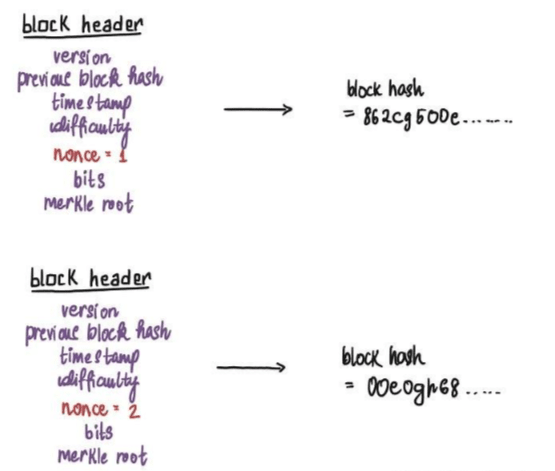 block header
version
previous block hash
timestamp
difficulty
nonce = 1
bits
merkle root
block hash
= 862cg500e.......
block header
version
previous block hash
timestamp
difficulty
nonce = 2
bits
merkle root
block hash
= 00e0gh68.....